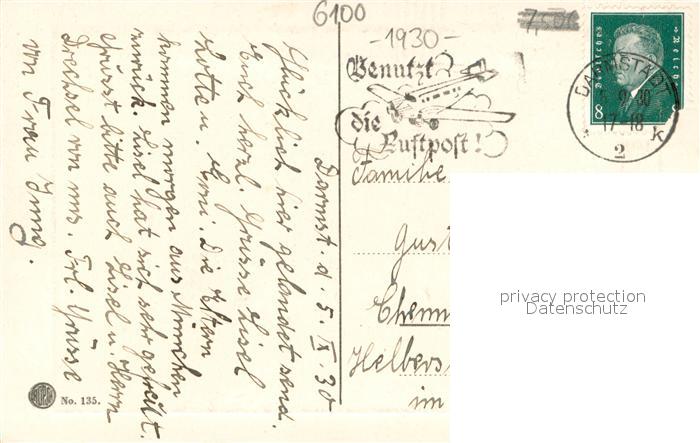 6100
7,50
-1930-
Benutzt
die
Luftpost!
Deutsches Reich
8
DARMSTADT
5.9.30
17-18
* 2 K
Darmst. d. 5. IX. 30
Glücklich hier gelandet send.
Euch herzl. Grüsse Lisel
Lotte u. Erni. Die Eltern
kommen morgen aus München
zurück. Lisel hat sich sehr gefreut.
Grüsst bitte auch Lisel u. Herrn
Drechsel von uns. Frl. Grüsse
von Frau Jung.
Familie
Gust
Chemn
Helbers
im
No. 135.
privacy protection
Datenschutz